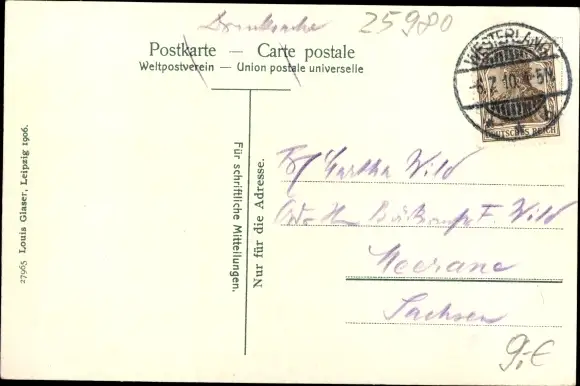 Drucksache 25980
Postkarte — Carte postale
Weltpostverein — Union postale universelle
WESTERLAND
DEUTSCHES REICH
27965 Louis Glaser, Leipzig 1906.
Für schriftliche Mitteilungen.
Nur für die Adresse.
Martha Wild
F. Wild
Meerane
Sachsen
9,-€